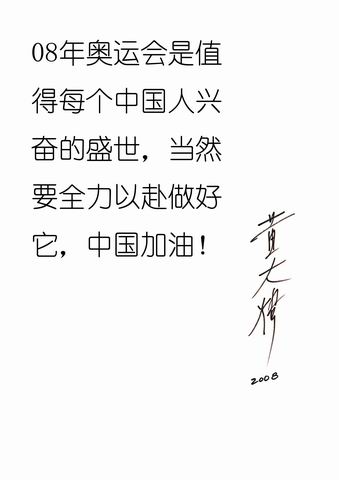 08年奥运会是值
得每个中国人兴
奋的盛世，当然
要全力以赴做好
它，中国加油！
黄大炜
2008